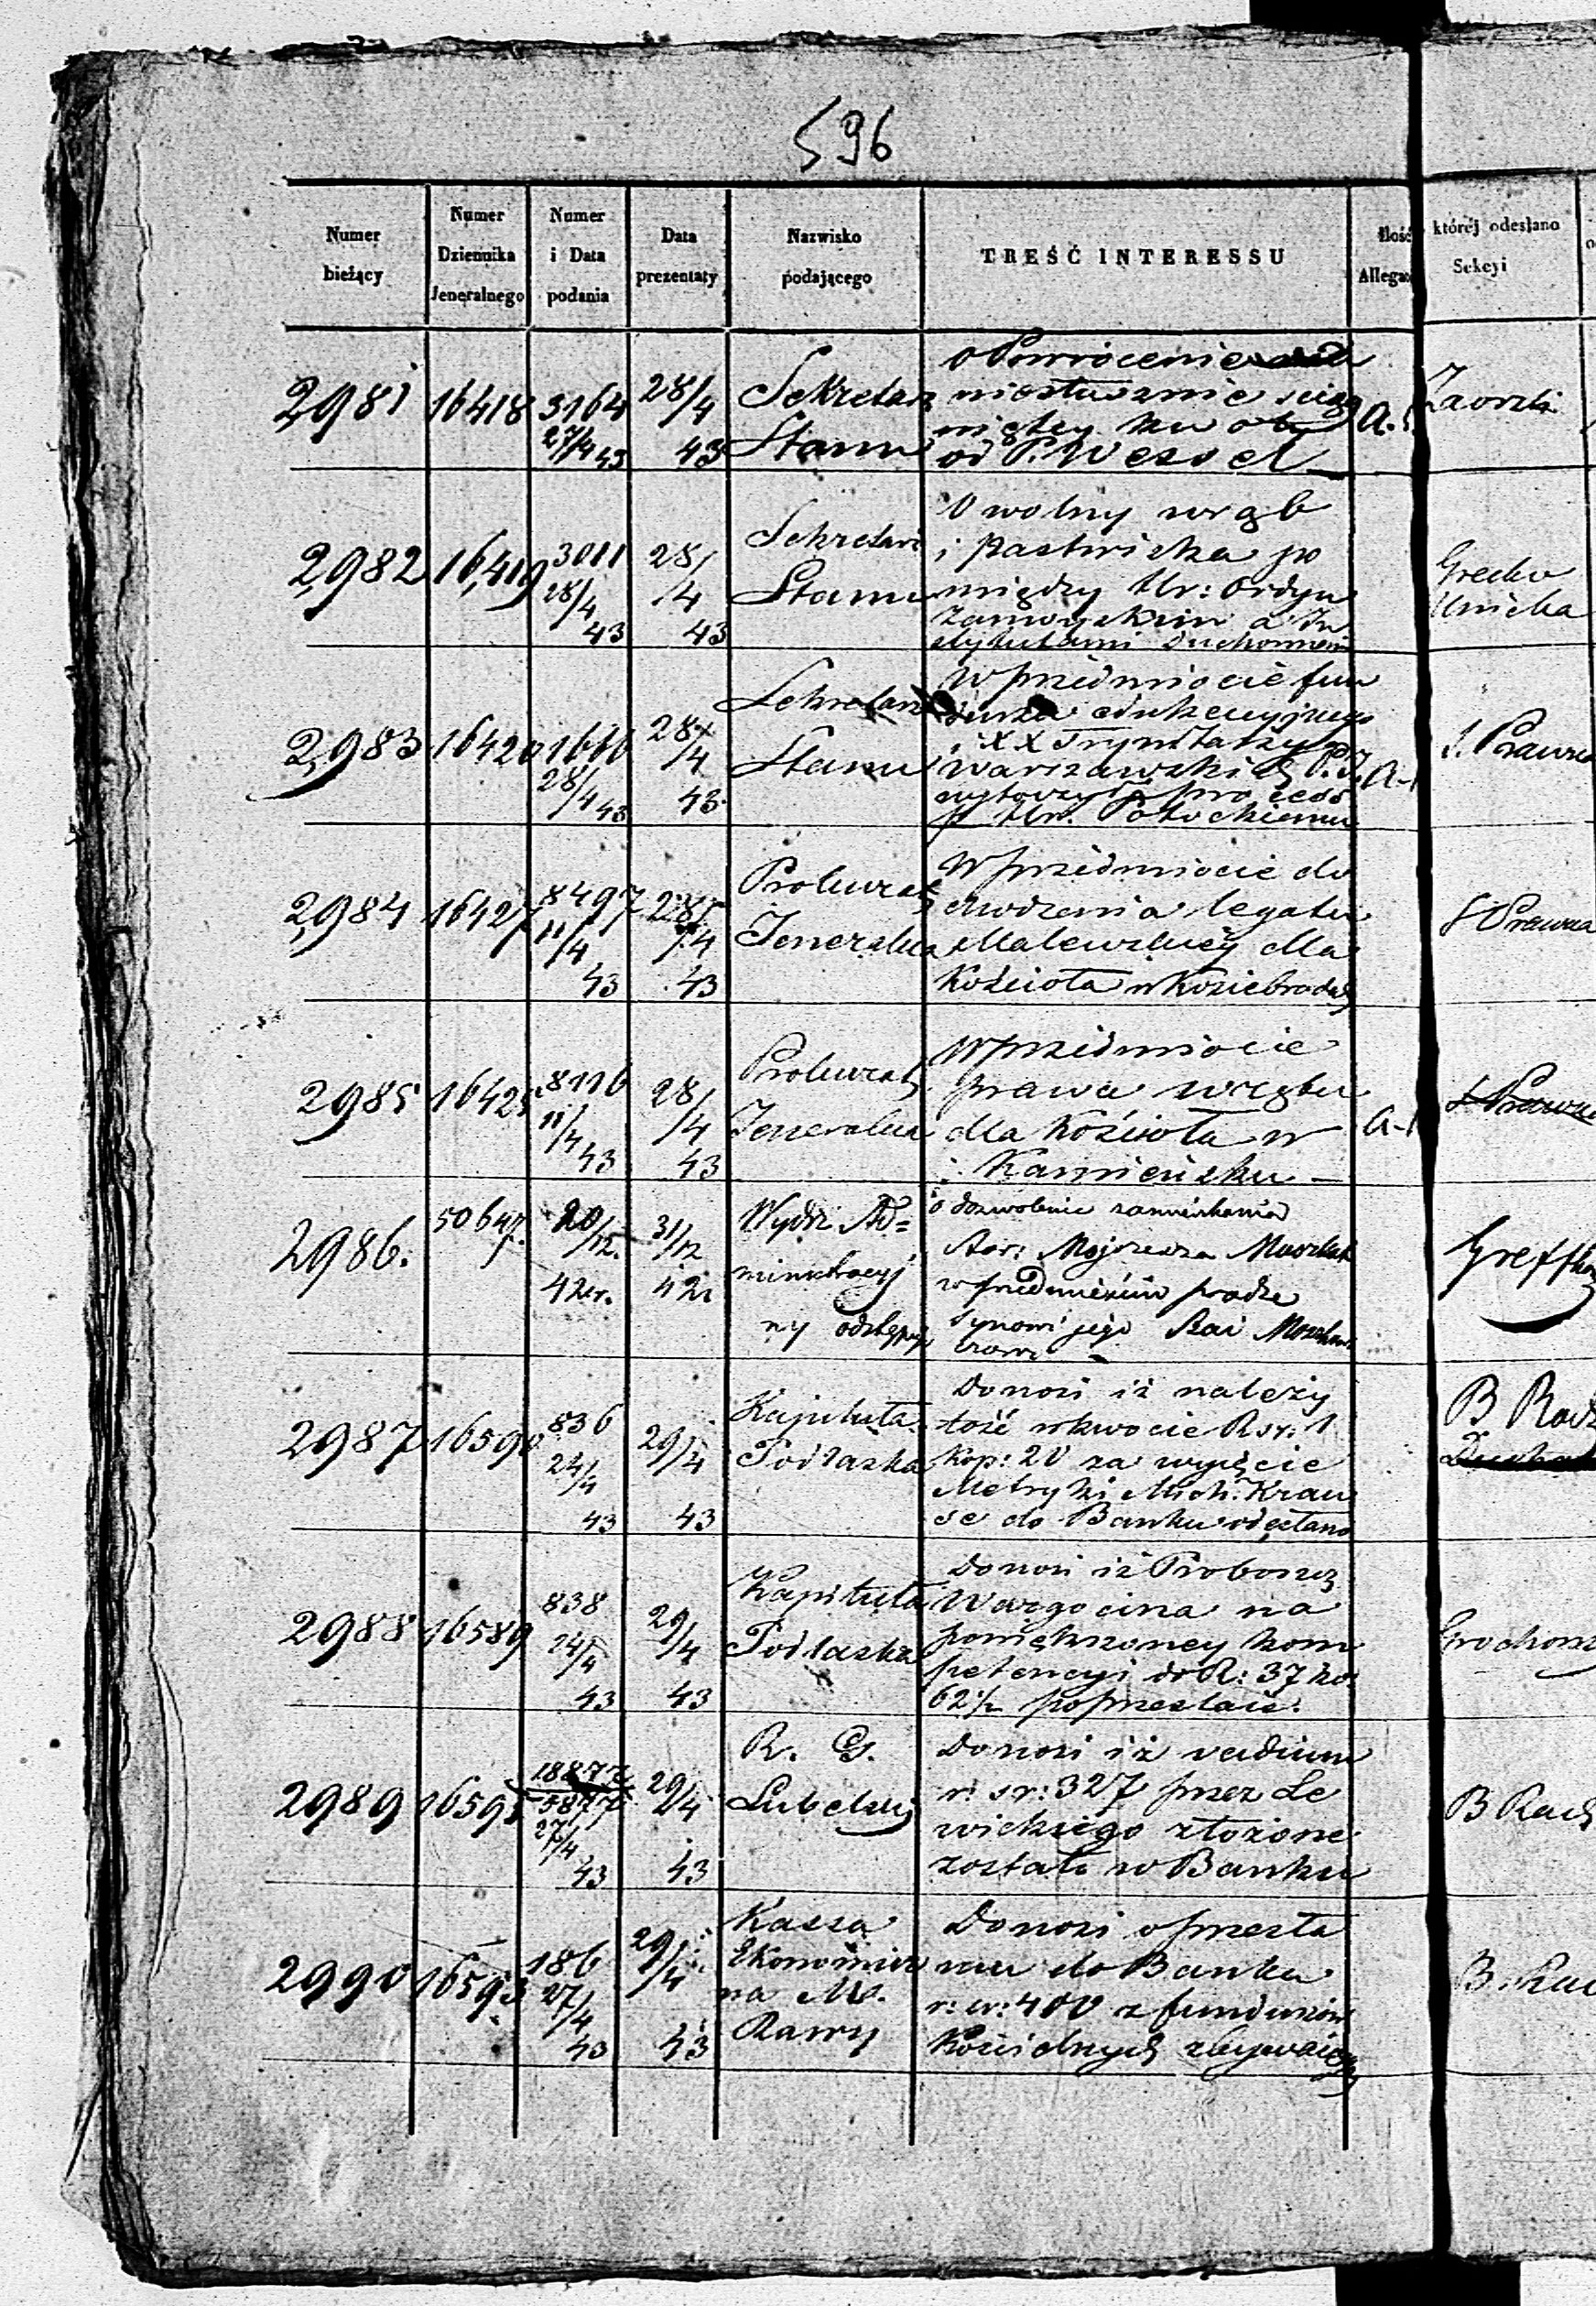 596
Numer bieżący
Numer Dziennika Jeneralnego
Numer i Data podania
Data prezentaty
Nazwisko podającego
TREŚĆ INTERESSU
Ilość Allegat
której odesłano Sekcyi
2981 16418 3164 27/4 43 28/4 43
Sekretarz
Stanu
o Powrócenie
niesłusznie ściąg
niętey
od P. Wessel
2982 16,419 3011 28/4 43 28/4 43
Sekretarz
Stanu
O wolny wrąb
i pastwiska po
między Hr: Ordyn
Zamoyskim a In
stytutami Duchownemi
Grecko
Unicka
2983 16420 1666 28/4 43 28/4 43
Sekretarz
Stanu
W przedmiocie fun
duszu edukacyjnego
XX Trynitarzy
Warszawskich
process
Hr. Potockiemu
S. Prawna
2984 16427 8497 11/4 43 28/4 43
Prokurat
Jeneralna
W przedmiocie do
chodzenia legatu
Malewskiéy dla
Kościoła w Koziebrodach
S Prawna
2985 16425 8116 11/4 43 28/4 43
Prokurat
Jeneralna
W przedmiocie
prawa wrębu
dla Kościoła w
Kamieńsku
A-1
S Prawna
2986. 50647. 20/12. 42 r. 31/12 42
Wydz. Ad=
ministracyj
ny odstępuje
o dozwolenie zamieszkania
Star: Mojżesza
w przedmieściu
synowi jego
2987 16590 836 24/4 43 29/4 43
Kapituła
Podlaska
Donosi iż należy
tość w kwocie R sr: 1
Kop: 20 za wyjęcie
Metryki Mich: Krau
se do Banku odesłano
B Rach
2988 16589 838 24/4 43 29/4 43
Kapituła
Podlaska
Donosi iż Proboszcz
Wargocina na
powiększoney kom
petencyi do R: 37 ko:
62 1/2 poprzestaie.
2989 16595 18877 5877 27/4 43 29/4 43
R. G.
Lubelski
Donosi iż vadium
r: sr: 327 przez Le
wickiego złożone
zostało w Banku
B Rach
2990 16593 186 27/4 43 29/4 43
Kassa
Ekonomicz
na M.
Rawy
Donosi o przesła
niu do Banku
r: sr: 400 z funduszów
Kościelnych zbywaiących
B. Rac